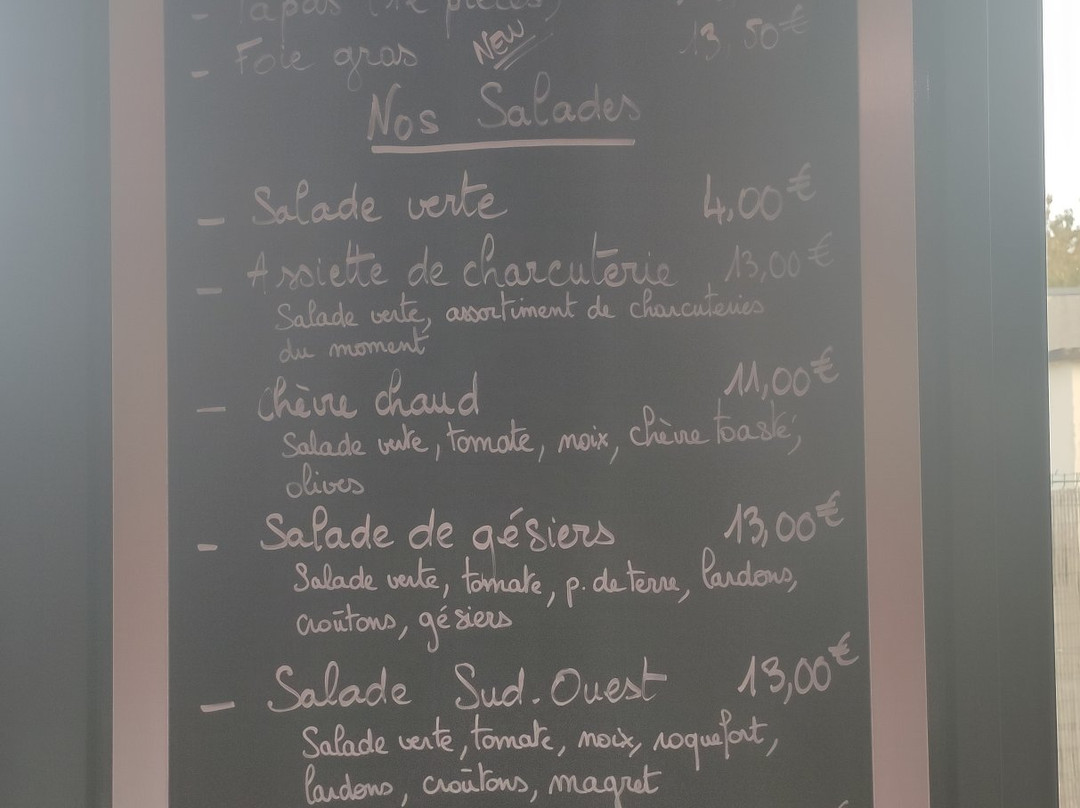 - Tapas (12 pièces)
- Foie gras NEW 13,50€
Nos Salades
- Salade verte 4,00€
- Assiette de charcuterie 13,00€
Salade verte, assortiment de charcuteries
du moment
- Chèvre chaud 11,00€
Salade verte, tomate, noix, chèvre toasté,
olives
- Salade de gésiers 13,00€
Salade verte, tomate, p. de terre, lardons,
croûtons, gésiers
- Salade Sud-Ouest 13,00€
Salade verte, tomate, noix, roquefort,
lardons, croûtons, magret